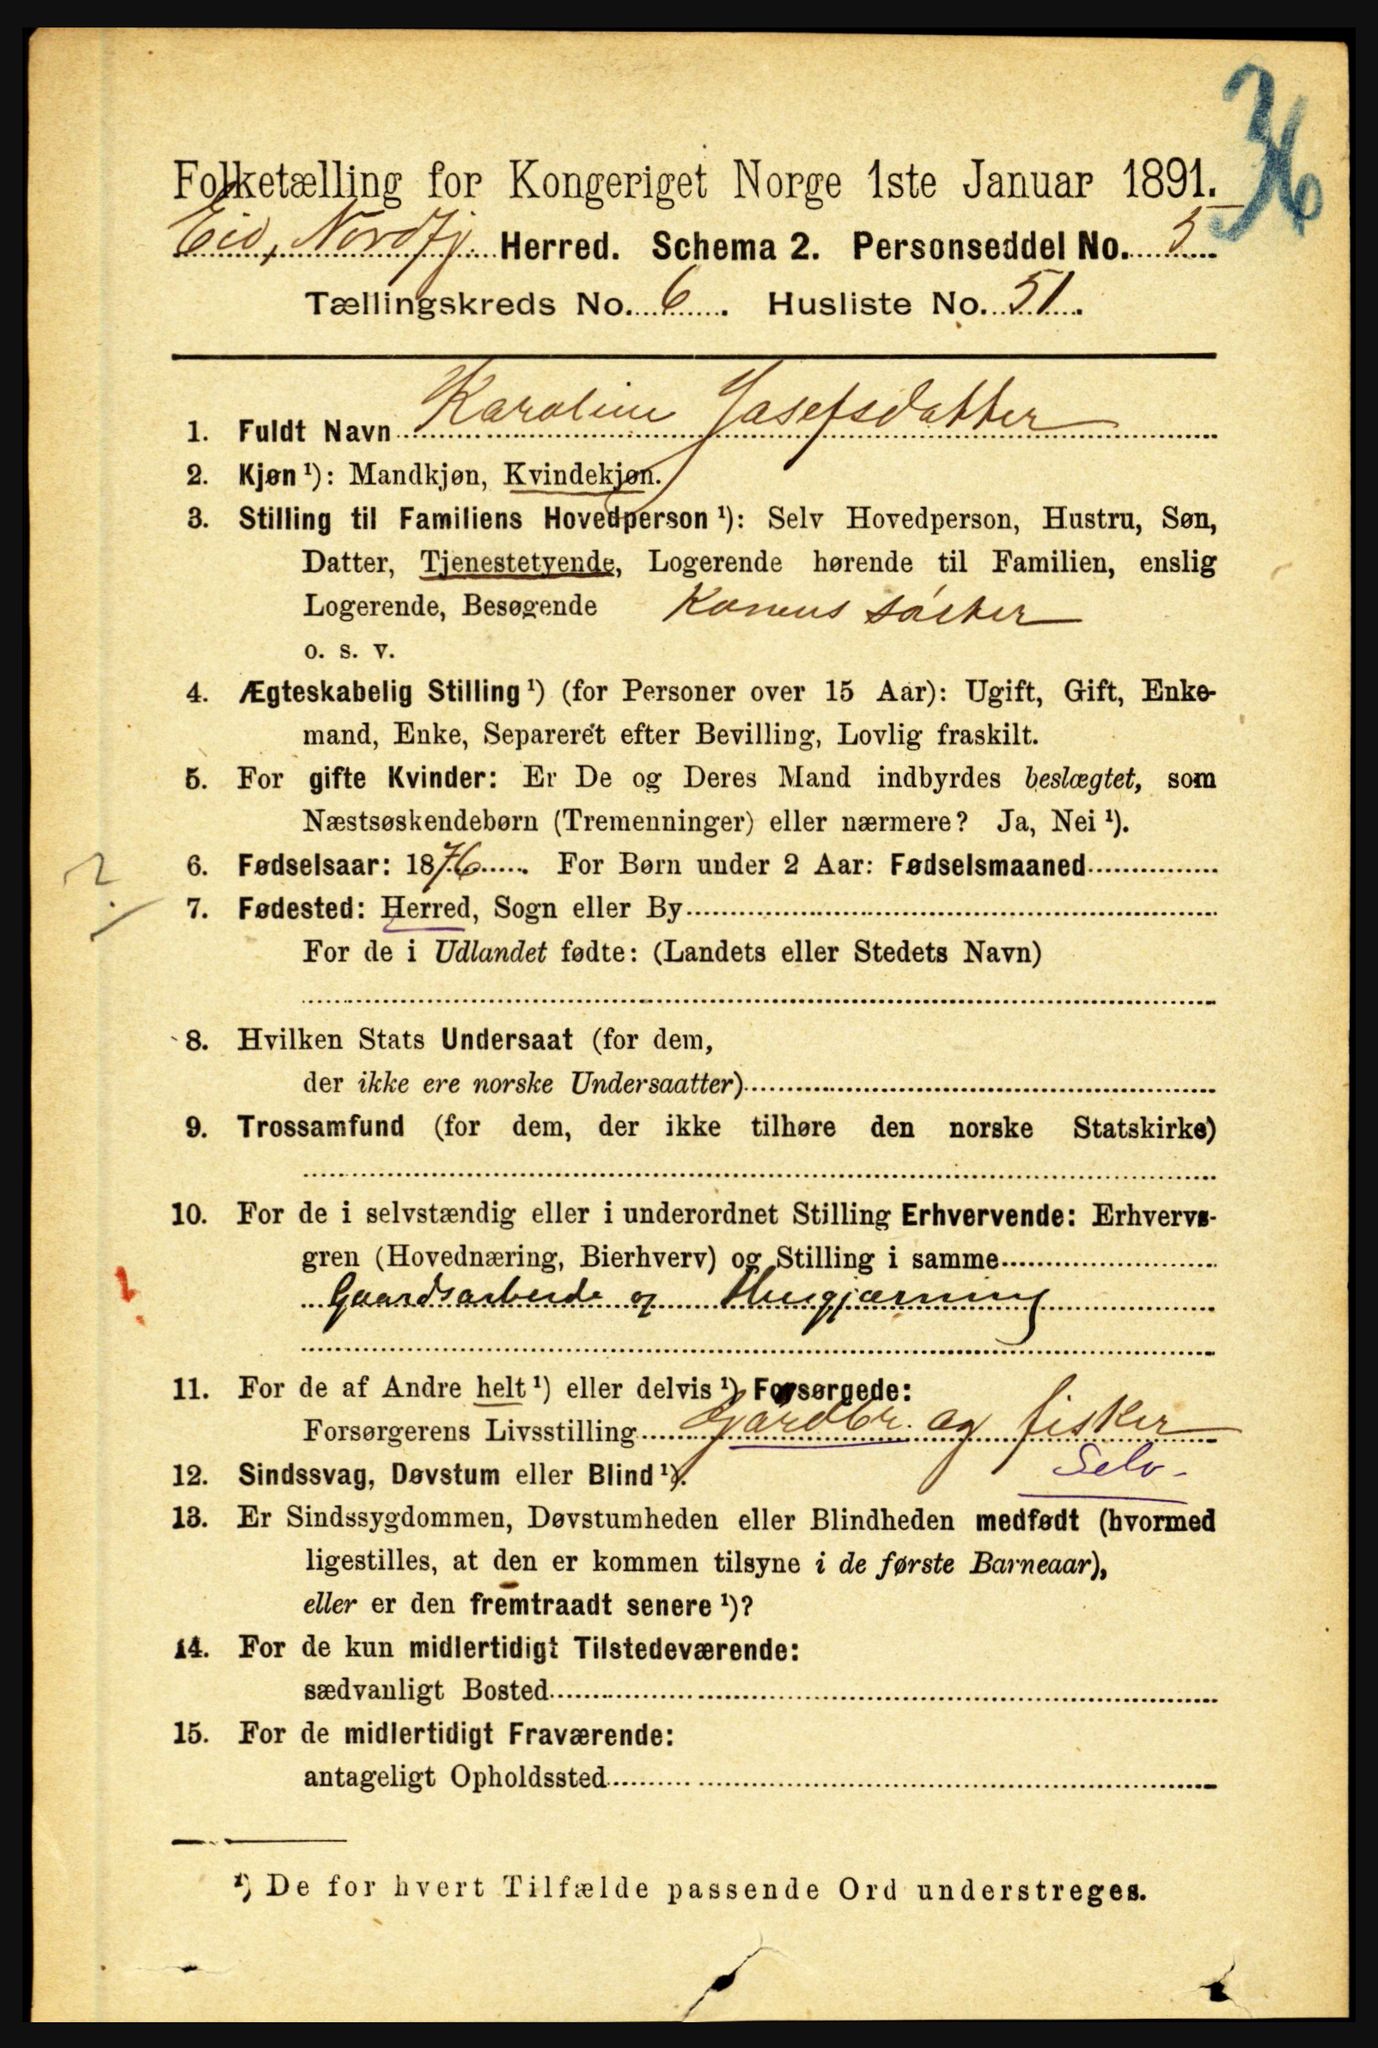 36
Folketælling for Kongeriget Norge 1ste Januar 1891.
Eid, Nordfj. Herred. Schema 2. Personseddel No. 5
Tællingskreds No. 6. Husliste No. 51.
1. Fuldt Navn Karoline Josefsdatter
2. Kjøn ¹): Mandkjøn, Kvindekjøn.
3. Stilling til Familiens Hovedperson ¹): Selv Hovedperson, Hustru, Søn,
Datter, Tjenestetyende, Logerende hørende til Familien, enslig
Logerende, Besøgende Konens søster
o. s. v.
4. Ægteskabelig Stilling ¹) (for Personer over 15 Aar): Ugift, Gift, Enke-
mand, Enke, Separeret efter Bevilling, Lovlig fraskilt.
5. For gifte Kvinder: Er De og Deres Mand indbyrdes beslægtet, som
Næstsøskendebørn (Tremenninger) eller nærmere? Ja, Nei ¹).
?
6. Fødselsaar: 1876. For Børn under 2 Aar: Fødselsmaaned
7. Fødested: Herred, Sogn eller By
For de i Udlandet fødte: (Landets eller Stedets Navn)
8. Hvilken Stats Undersaat (for dem,
der ikke ere norske Undersaatter)
9. Trossamfund (for dem, der ikke tilhøre den norske Statskirke)
10. For de i selvstændig eller i underordnet Stilling Erhvervende: Erhvervs-
gren (Hovednæring, Bierhverv) og Stilling i samme
Gaardsarbeide og Husgjærning
11. For de af Andre helt ¹) eller delvis ¹) Forsørgede:
Forsørgerens Livsstilling Gardbr. og fisker
12. Sindssvag, Døvstum eller Blind ¹). Selv-
13. Er Sindssygdommen, Døvstumheden eller Blindheden medfødt (hvormed
ligestilles, at den er kommen tilsyne i de første Barneaar),
eller er den fremtraadt senere ¹)?
14. For de kun midlertidigt Tilstedeværende:
sædvanligt Bosted
15. For de midlertidigt Fraværende:
antageligt Opholdssted
¹) De for hvert Tilfælde passende Ord understreges.